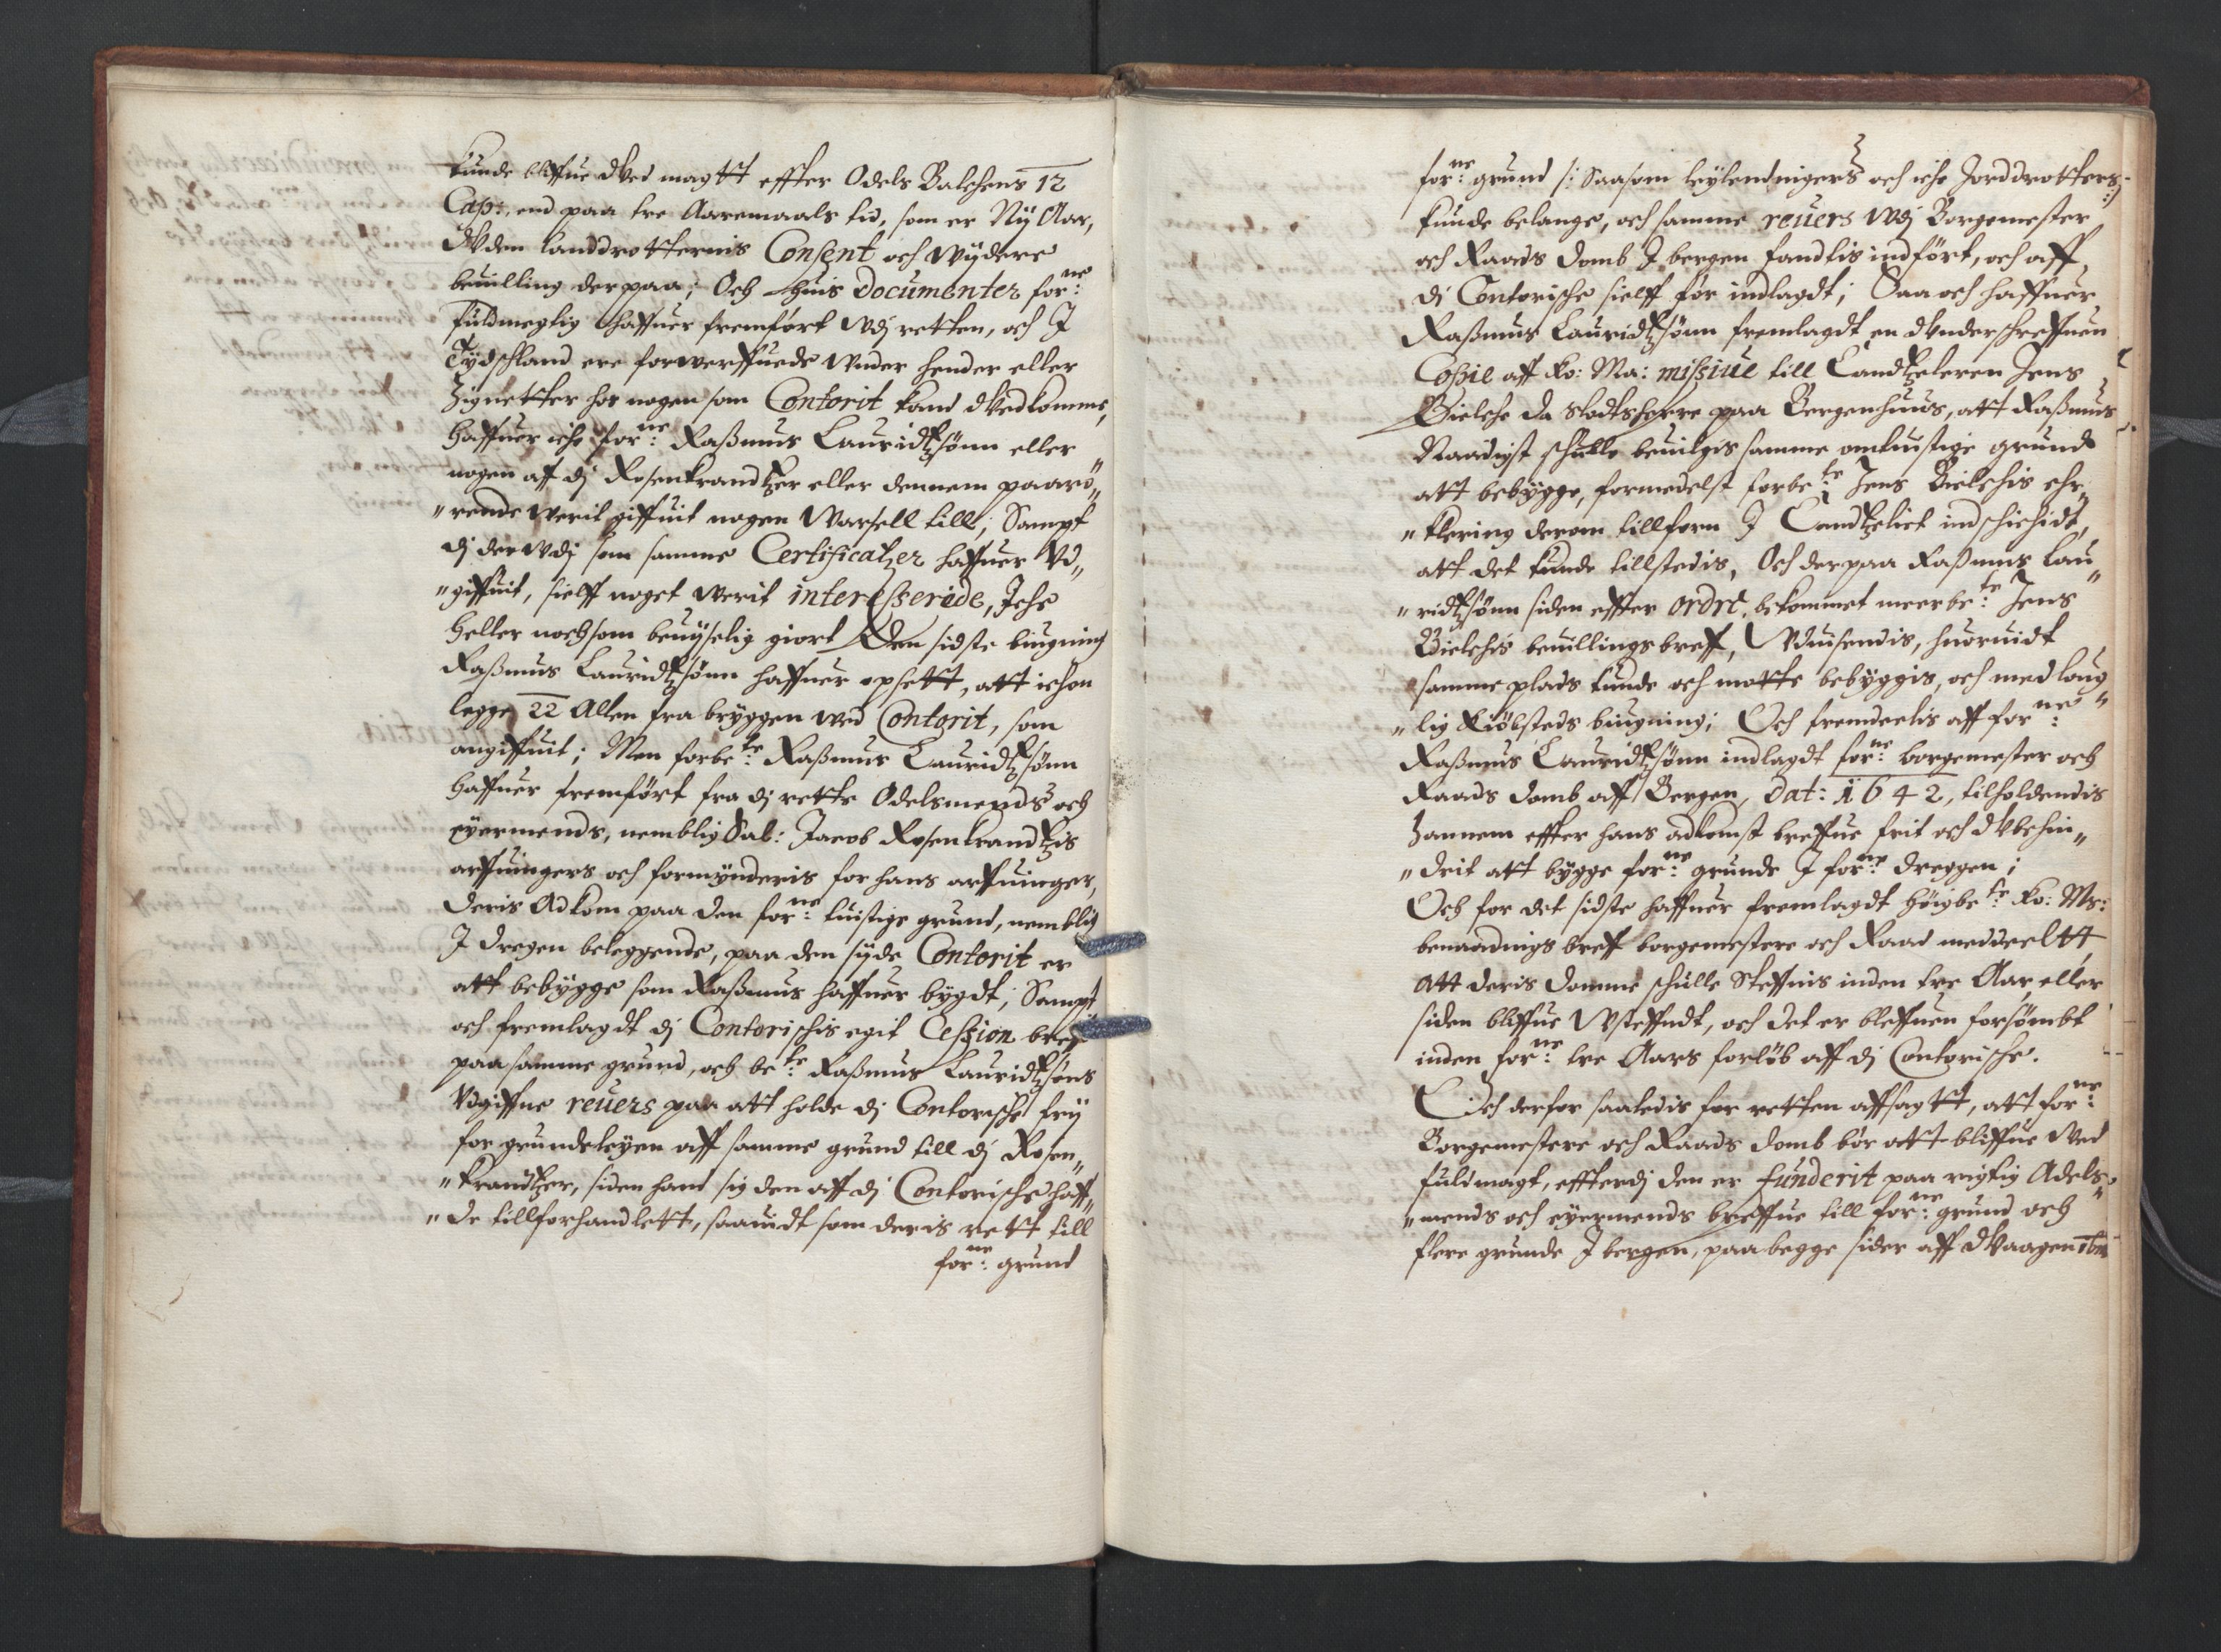 kunde bliffue Wed magtt effter Odels Balchens 12
Cap:, end paa tre Aaremaals tid, som er Nij Aar,
Vden landdrotternis Consent och Wijdere
beuilling derpaa; Och huis Documenter for:ne
fuldmegtig haffuer fremført Wdj retten, och J
Tydschland ere forwerffuede Wnder hender eller
Zignetter hos nogen som Contorit kand Vedkomme,
haffuer iche for:ne Raßmus Lauridtzsønn eller
nogen aff dj Rosenkrandtzer eller dennem paarø„
„rende Werit giffuit nogen Warsell till; Sampt
dj der Wdj som samme Certificatzer haffuer Vd„
„giffuit, sielff noget Werit interesserede, Jche
heller nochsom beuijselig giort Den sidste biugning
Raßmus Lauridtzsønn haffuer opsett, att ichon
legge 22 Allen fra bryggen Wed Contorit, som
angiffuit; Men forbe:te Raßmus Lauridtzsønn
haffuer fremført fra dj rette Odelsmends och
eyermends, nemblig Sal: Jacob Rosenkrandtzis
arffuingers och formynderis for hans arffuinger,
deris Adkom paa den for:ne tuistige grund, nemblig
J Dregen beleggende, paa den syde Contorit er
att bebygge som Raßmus haffuer bygdt; Sampt
och fremlagdt dj Contorischis egit Cession breff
paa samme grund, och be:te Raßmus Lauridtzsøns
Vdgiffne reuers paa att holde dj Contorische frij
for grundeleyen aff samme grund till dj Rosen„
„krandtzer, siden hand sig den aff dj Contorische haff„
„de tillforhandlett, saauidt som deris rett till
for:ne grund
for:ne grund /: Saasom leylendingers och iche Jorddrotters :/
kunde belange, och samme reuers Wdj Borgemester
och Raads domb J bergen fandtis indført, och aff
dj Contorische sielff før indlagdt; Saa och haffuer
Raßmus Lauridtzsønn fremlagdt en Vnderschreffuen
Copie aff Ko: Ma: missiue till Candtzeleren Jens
Bielche da Slodtsherre paa Bergenhuus, att Raßmus
Naadigst schulle beuilgis samme omtuistige grund
att bebygge, formedelst forbe:te Jens Bielchis ehr„
„klering derom tillforn J Candtzeliet indschichidt,
att det kunde tillstedis, Och derpaa Raßmus Lau„
„ridtzsønn siden effter ordre, bekommet meerbe:te Jens
Bielchis beuillings breff, Vduisendis, huoruidt
samme plads kunde och motte bebyggis, och med loug„
„lig Kiøbsteds biugning; Och fremdeelis aff for:ne
Raßmus Lauridtzsønn indlagdt for:ne borgemester och
Raads domb aff Bergen, Dat: 1642, tilholdendis
hannem effter hans adkomst breffue frit och Vbehin„
„drit att bygge for:ne grunde J for:ne Dreggen;
Och for det sidste haffuer fremlagdt høigbe:te Ko: Ms:
benaadnigs breff borgemestere och Raad meddeeltt,
Att deris domme schulle Steffnis inden tre Aar eller
siden bliffue Vsteffndt, och det er bleffuen forsømbt
inden for:ne tre Aars forløb aff dj Contorische.
Och derfor saaledis for retten affsagtt, att for:ne
Borgemestere och Raads domb bør att bliffue Wed
fuldmagt, effterdj den er funderit paa rigtig Adels„
„mends och eyermends breffue till for:ne grund och
flere grunde J bergen, paa begge sider aff Waagen